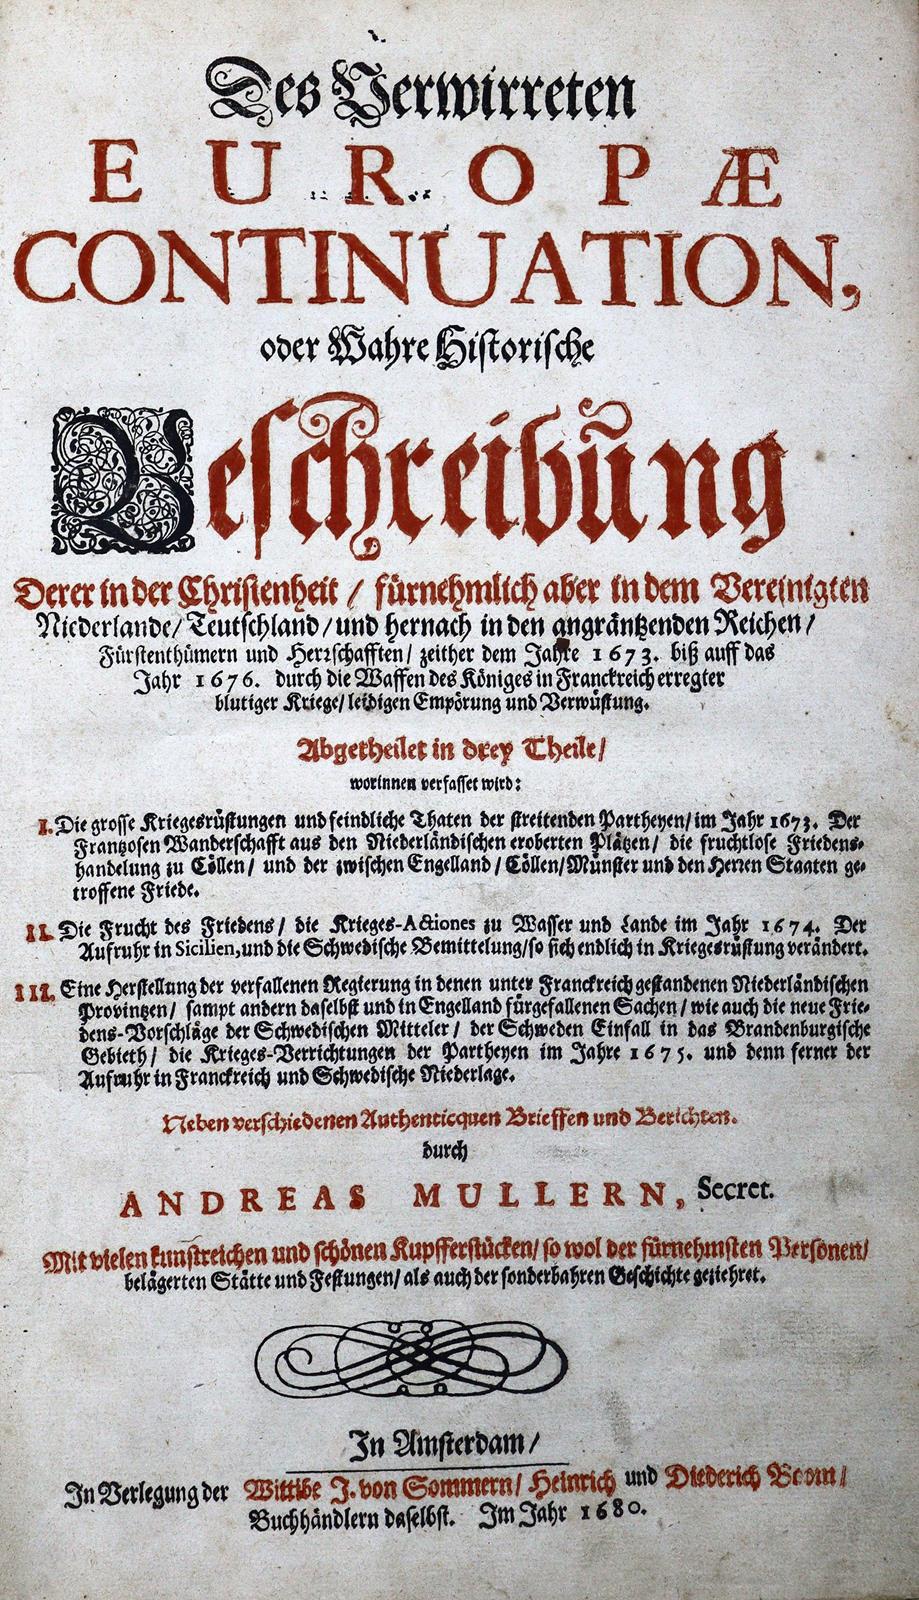 Des Verwirreten
EUROPÆ
CONTINUATION,
oder Wahre Historische
Beschreibung
Derer in der Christenheit / fürnehmlich aber in dem Vereinigten
Niederlande / Teutschland / und hernach in den angräntzenden Reichen /
Fürstenthümern und Herrschafften / zeither dem Jahre 1673. biß auff das
Jahr 1676. durch die Waffen des Königes in Franckreich erregter
blutiger Kriege / leidigen Empörung und Verwüstung.
Abgetheilet in drey Theile /
worinnen verfasset wird:
I. Die grosse Kriegesrüstungen und feindliche Thaten der streitenden Partheyen / im Jahr 1673. Der
Frantzosen Wanderschafft aus den Niederländischen eroberten Plätzen / die fruchtlose Friedens-
handelung zu Cöllen / und der zwischen Engelland / Cöllen / Münster und den Herren Staaten ge-
troffene Friede.
II. Die Frucht des Friedens / die Krieges-Actiones zu Wasser und Lande im Jahr 1674. Der
Aufruhr in Sicilien, und die Schwedische Bemittelung / so sich endlich in Kriegesrüstung verändert.
III. Eine Herstellung der verfallenen Regierung in denen unter Franckreich gestandenen Niederländischen
Provintzen / sampt andern daselbst und in Engelland fürgefallenen Sachen / wie auch die neue Frie-
dens-Vorschläge der Schwedischen Mitteler / der Schweden Einfall in das Brandenburgische
Gebieth / die Krieges-Verrichtungen der Partheyen im Jahre 1675. und denn ferner der
Aufruhr in Franckreich und Schwedische Niederlage.
Neben verschiedenen Authenticquen Brieffen und Berichten.
durch
ANDREAS MULLERN, Secret.
Mit vielen kunstreichen und schönen Kupfferstücken / so wol der fürnehmsten Personen /
belägerten Stätte und Festungen / als auch der sonderbahren Geschichte geziehret.
In Amsterdam /
In Verlegung der Wittibe J. von Sommern / Heinrich und Diederich Boom /
Buchhändlern daselbst. Im Jahr 1680.